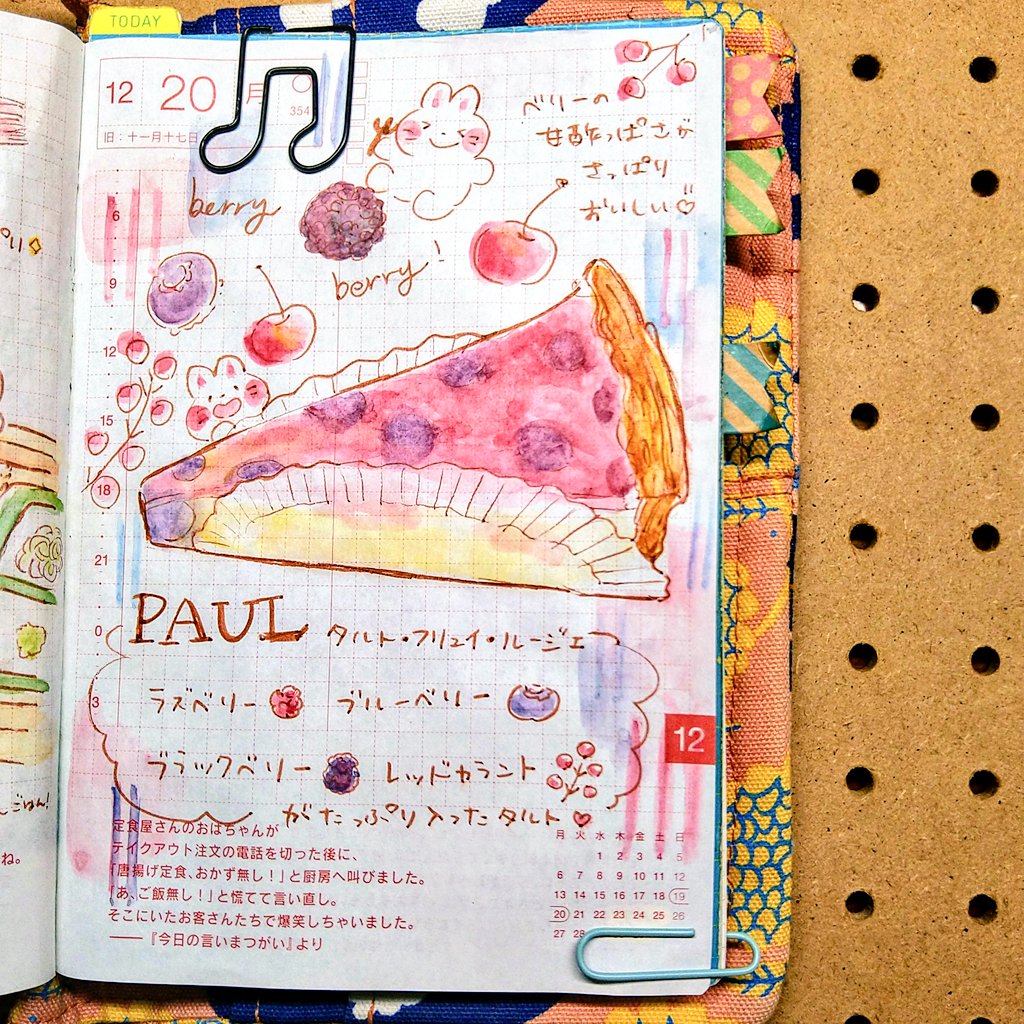 TODAY
12 20 月
354
旧：十一月十七日
ベリーの
甘酢っぱさが
さっぱり
おいしい♡
berry
berry!
6
9
12
15
18
21
0
3
PAUL タルト・フリュイ・ルージェ
ラズベリー ブルーベリー
12
ブラックベリー レッドカラント
がたっぷり入ったタルト♡
定食屋さんのおばちゃんが
テイクアウト注文の電話を切った後に、
「唐揚げ定食、おかず無し！」と厨房へ叫びました。
「あ、ご飯無し！」と慌てて言い直し。
そこにいたお客さんたちで爆笑しちゃいました。
——『今日の言いまつがい』より
月 火 水 木 金 土 日
1 2 3 4 5
6 7 8 9 10 11 12
13 14 15 16 17 18 19
20 21 22 23 24 25 26
27 28
ごはん!
ね。